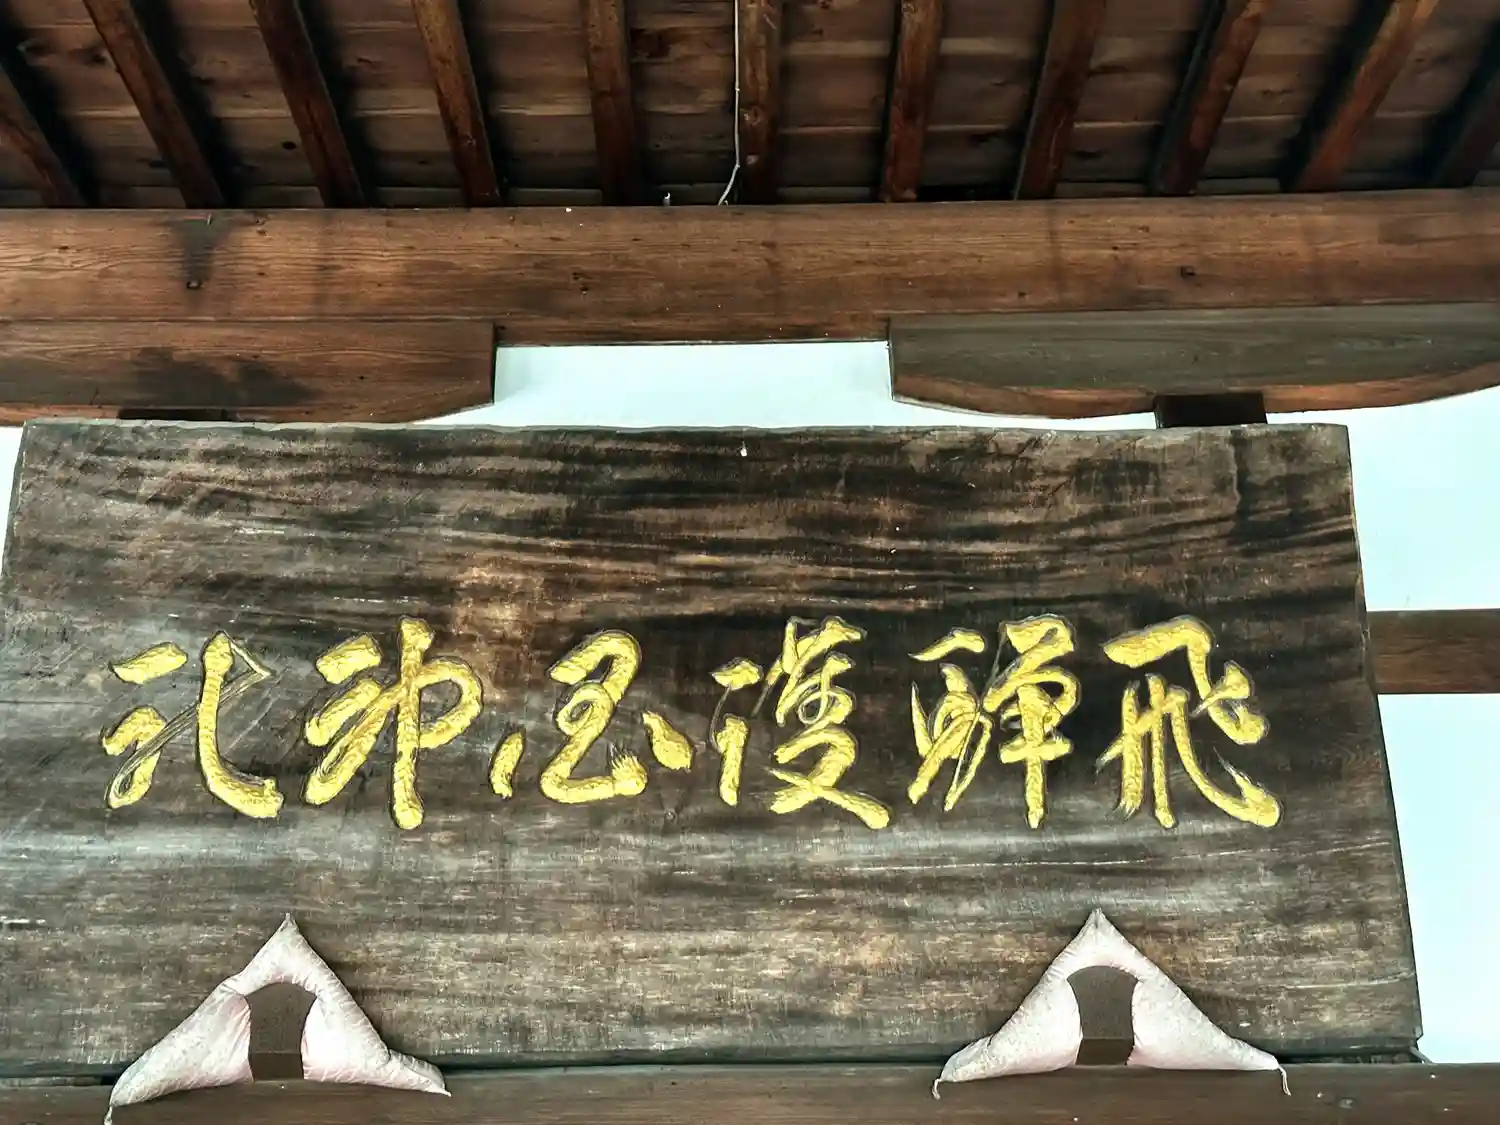 飛騨護國神社